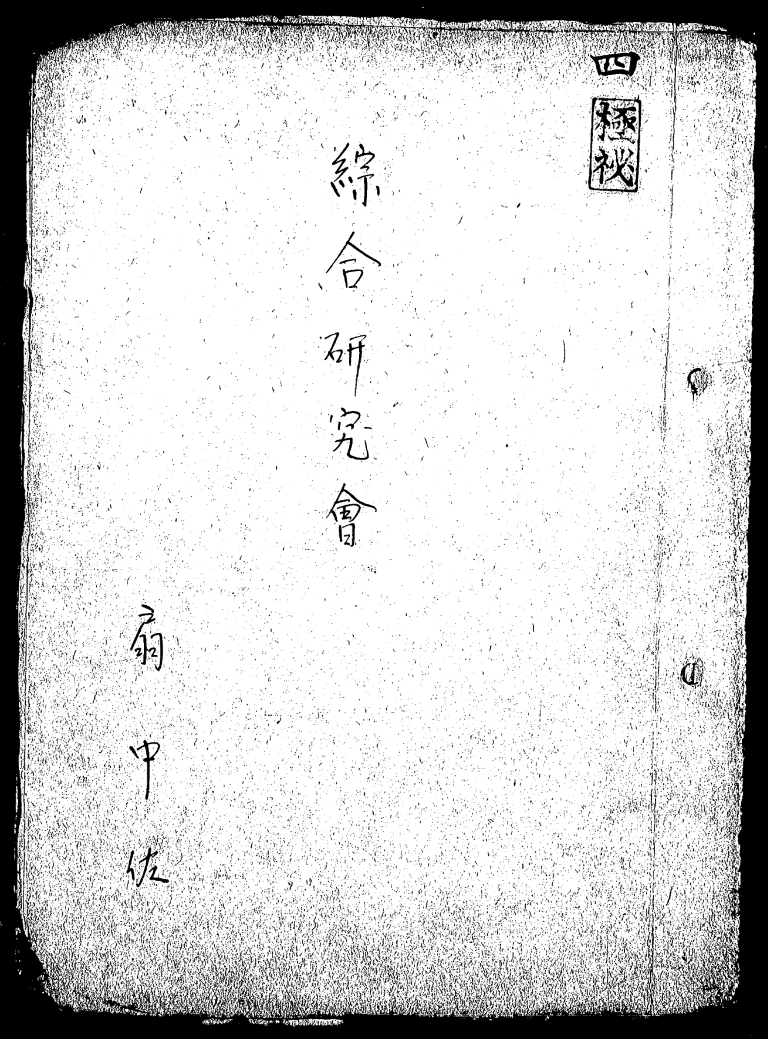 四 極秘
綜合研究會
扇中佐